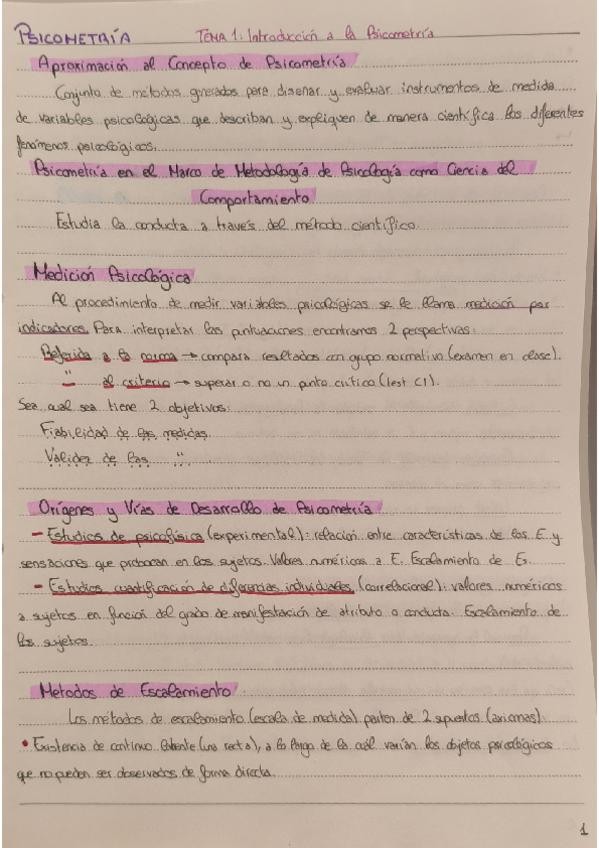 PSICOMETRÍA TEMA 1: Introducción a la Psicometría
Aproximación al Concepto de Psicometría
Conjunto de métodos generados para diseñar y evaluar instrumentos de medida
de variables psicológicas que describan y expliquen de manera científica los diferentes
fenómenos psicológicos.
Psicometría en el Marco de Metodología de Psicología como Ciencia del
Comportamiento
Estudia la conducta a través del método científico.
Medición Psicológica
Al procedimiento de medir variables psicológicas se le llama medición por
indicadores. Para interpretar las puntuaciones encontramos 2 perspectivas:
Referida a la norma → compara resultados con grupo normativo (examen en clase).
" al criterio → superar o no un punto crítico (test CI).
Sea cual sea tiene 2 objetivos:
Fiabilidad de las medidas.
Validez de las "
Orígenes y Vías de Desarrollo de Psicometría
- Estudios de psicofísica (experimental): relación entre características de los E. y
sensaciones que producen en los sujetos. Valores numéricos a E. Escalamiento de E.
- Estudios cuantificación de diferencias individuales (correlacional): valores numéricos
a sujetos en función del grado de manifestación de atributo o conducta. Escalamiento de
los sujetos.
Métodos de Escalamiento
Los métodos de escalamiento (escala de medida) parten de 2 supuestos (axiomas)
• Existencia de continuo latente (una recta), a lo largo de la cuál varían los objetos psicológicos
que no pueden ser observados de forma directa.
1